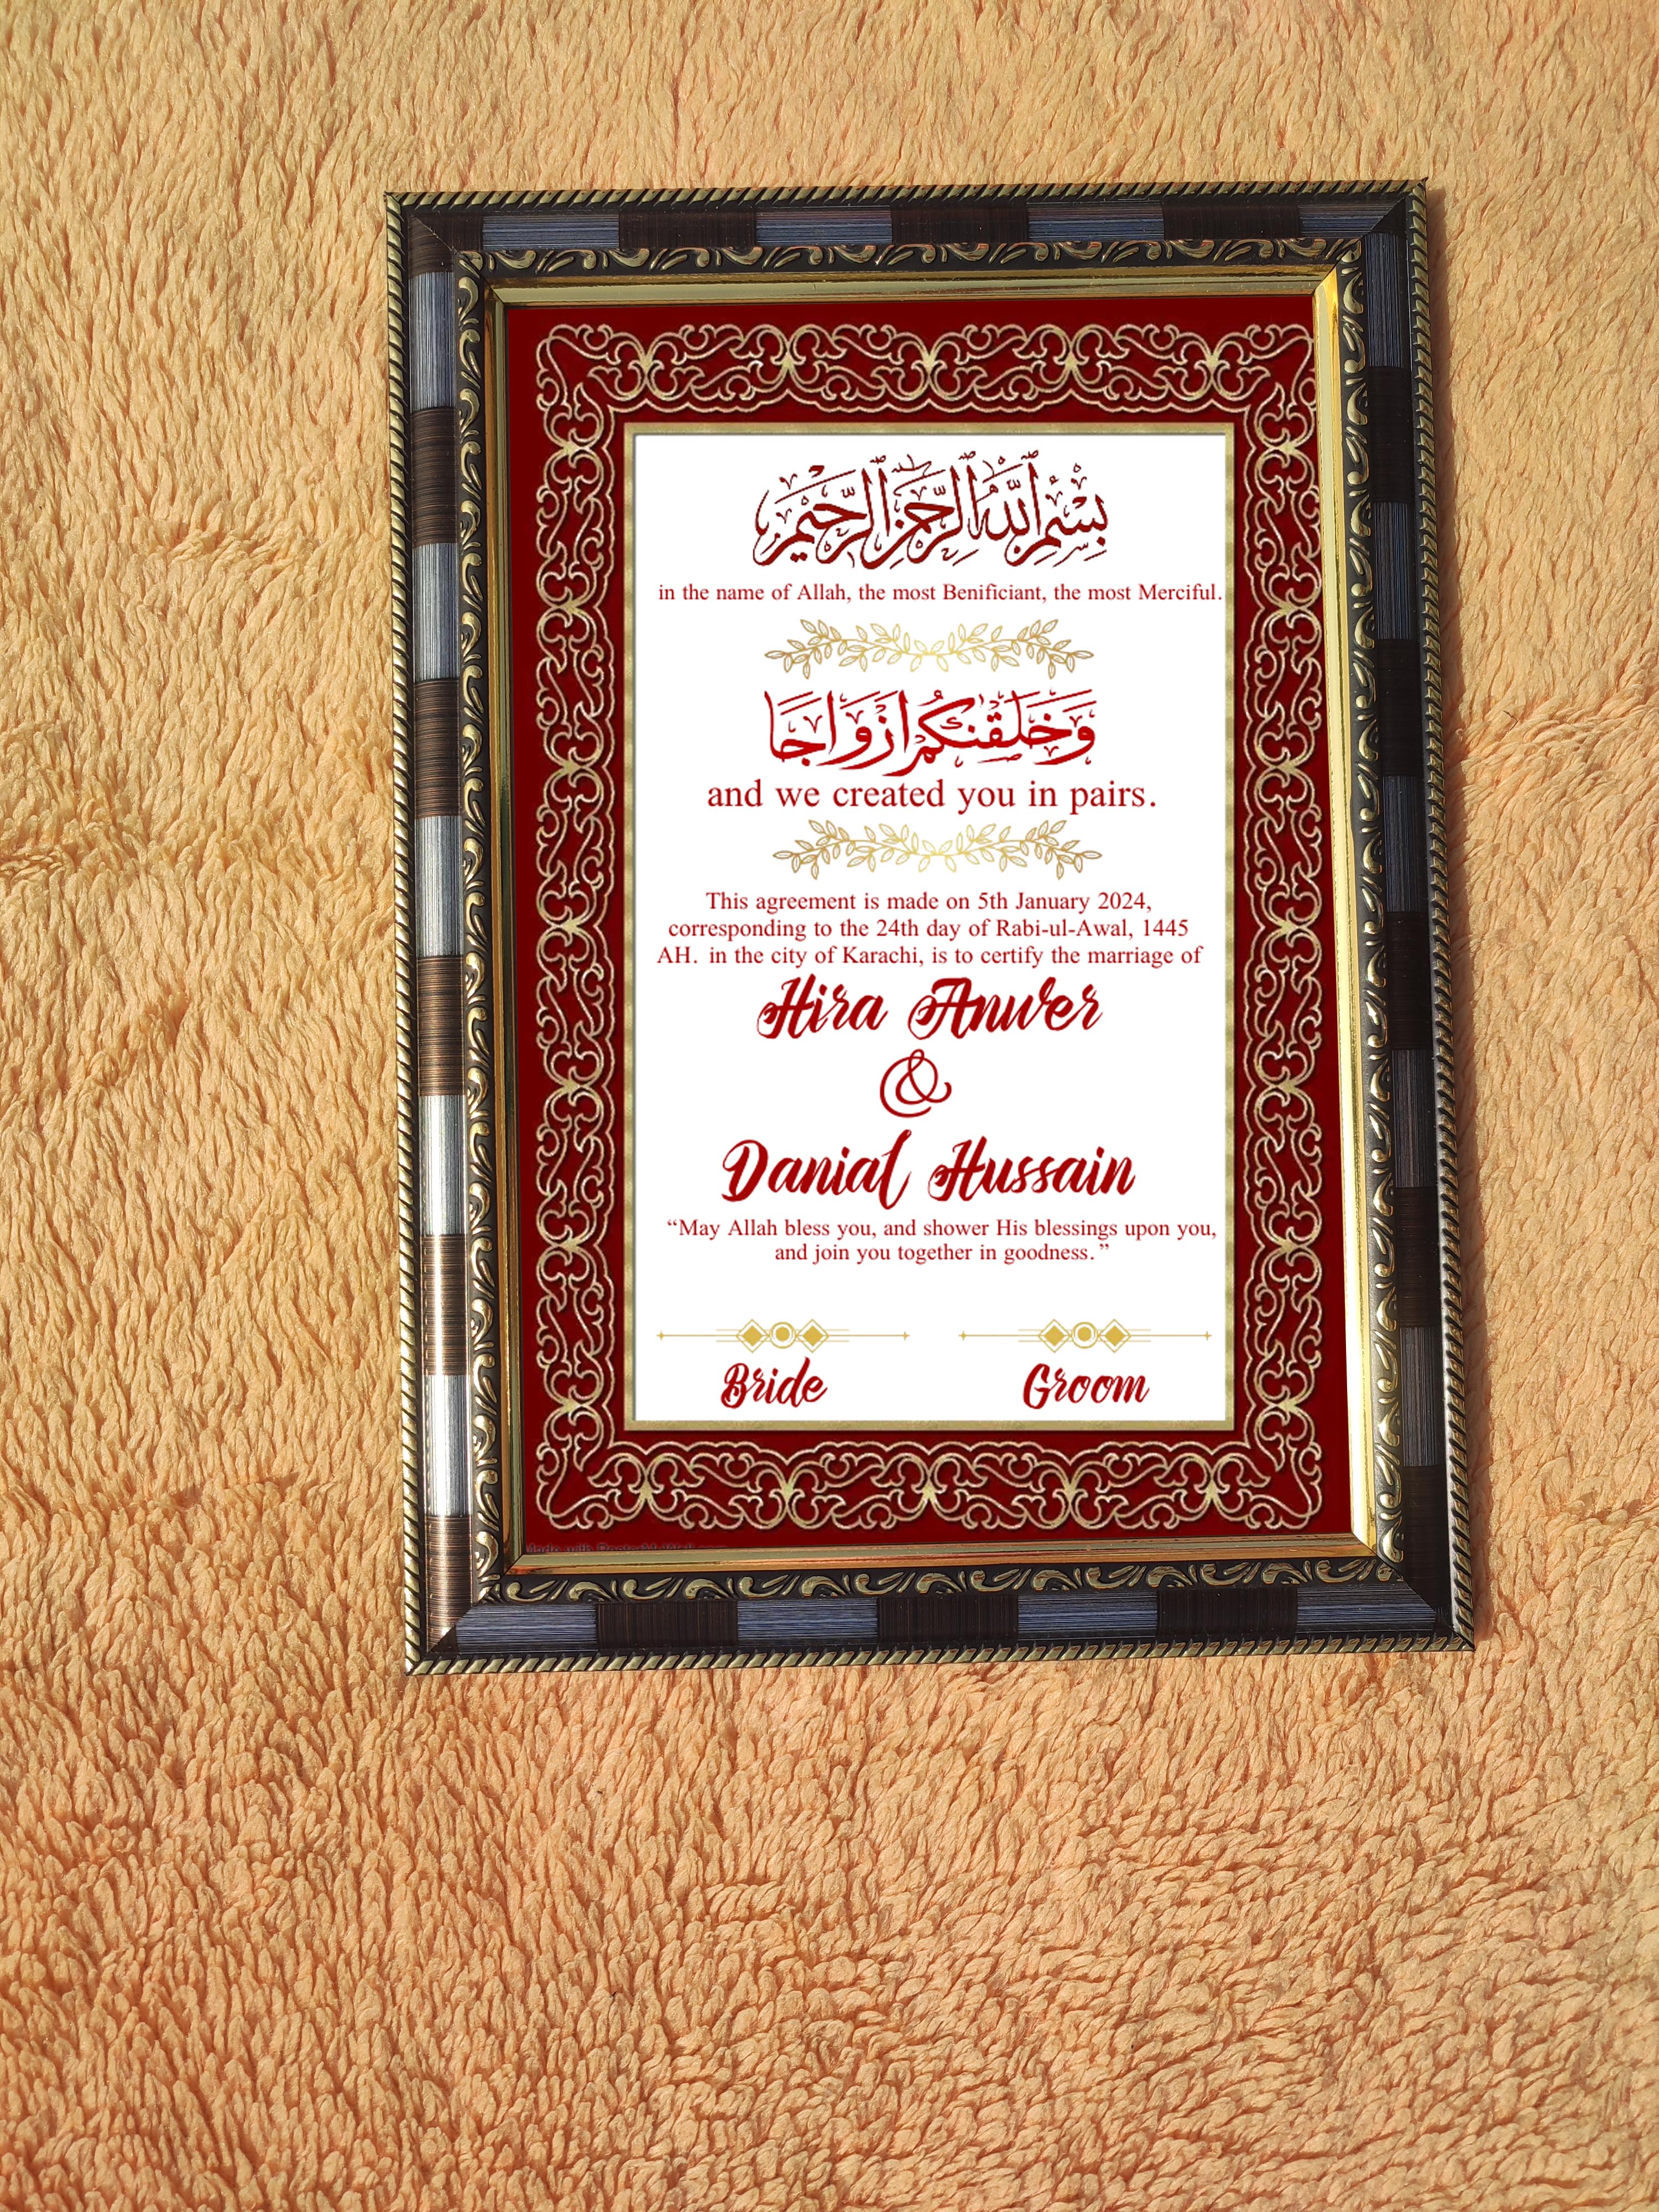 بِسْمِ اللَّهِ الرَّحْمَٰنِ الرَّحِيمِ
in the name of Allah, the most Benificiant, the most Merciful.
وَخَلَقْنَٰكُمْ أَزْوَاجًا
and we created you in pairs.
This agreement is made on 5th January 2024,
corresponding to the 24th day of Rabi-ul-Awal, 1445
AH. in the city of Karachi, is to certify the marriage of
Hira Anwer
&
Danial Hussain
“May Allah bless you, and shower His blessings upon you,
and join you together in goodness.”
Bride Groom
Made with PosterMyWall.com